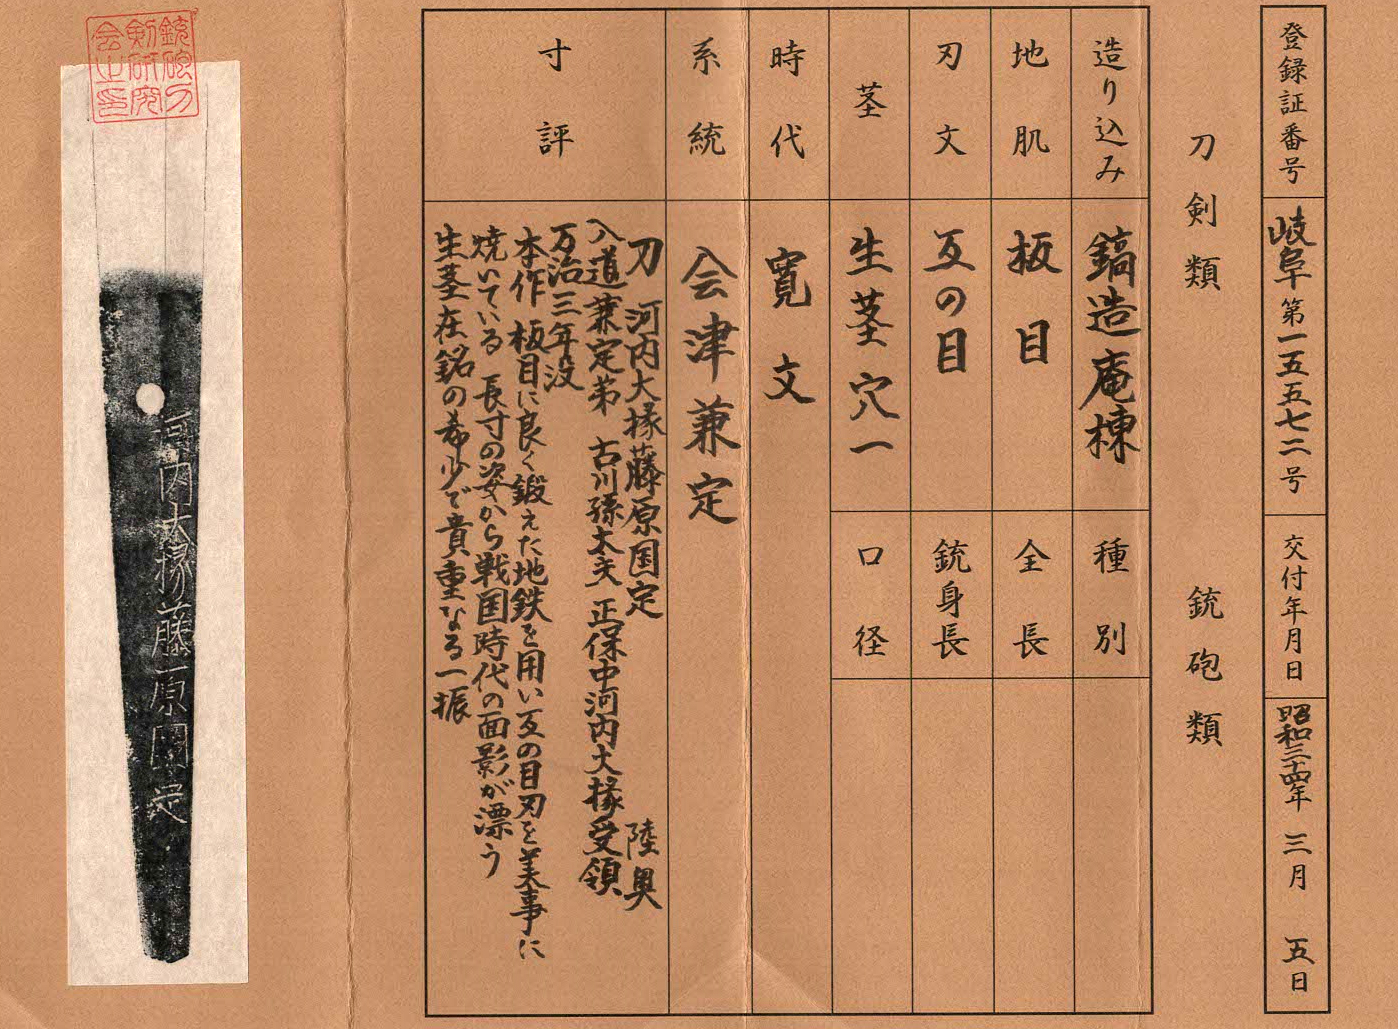 登録証番号 岐阜第一五五七二号 交付年月日 昭和三十四年三月五日
刀剣類 銃砲類
造り込み 鎬造庵棟 種別
地肌 板目 全長
刃文 互の目 銃身長
茎 生茎穴一 口径
時代 寛文
系統 会津兼定
寸評
刀 河内大掾藤原国定 陸奥
入道兼定弟 古川孫太夫 正保中河内大掾受領
万治三年没
本作 板目に良く鍛えた地鉄を用い互の目刃を美事に
焼いている 長寸の姿から戦国時代の面影が漂う
生茎在銘の希少で貴重なる一振
銃砲刀
剣研究
会之印
河内大掾藤原國定